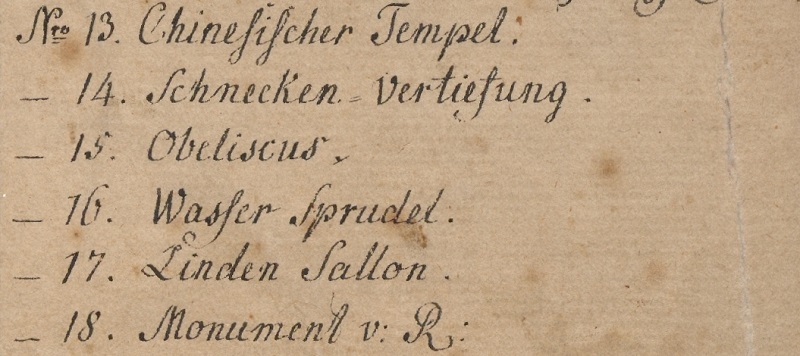 Nro 13. Chinesischer Tempel.
— 14. Schnecken=Vertiefung.
— 15. Obeliscus.
— 16. Wasser Sprudel.
— 17. Linden Sallon.
— 18. Monument v: R: